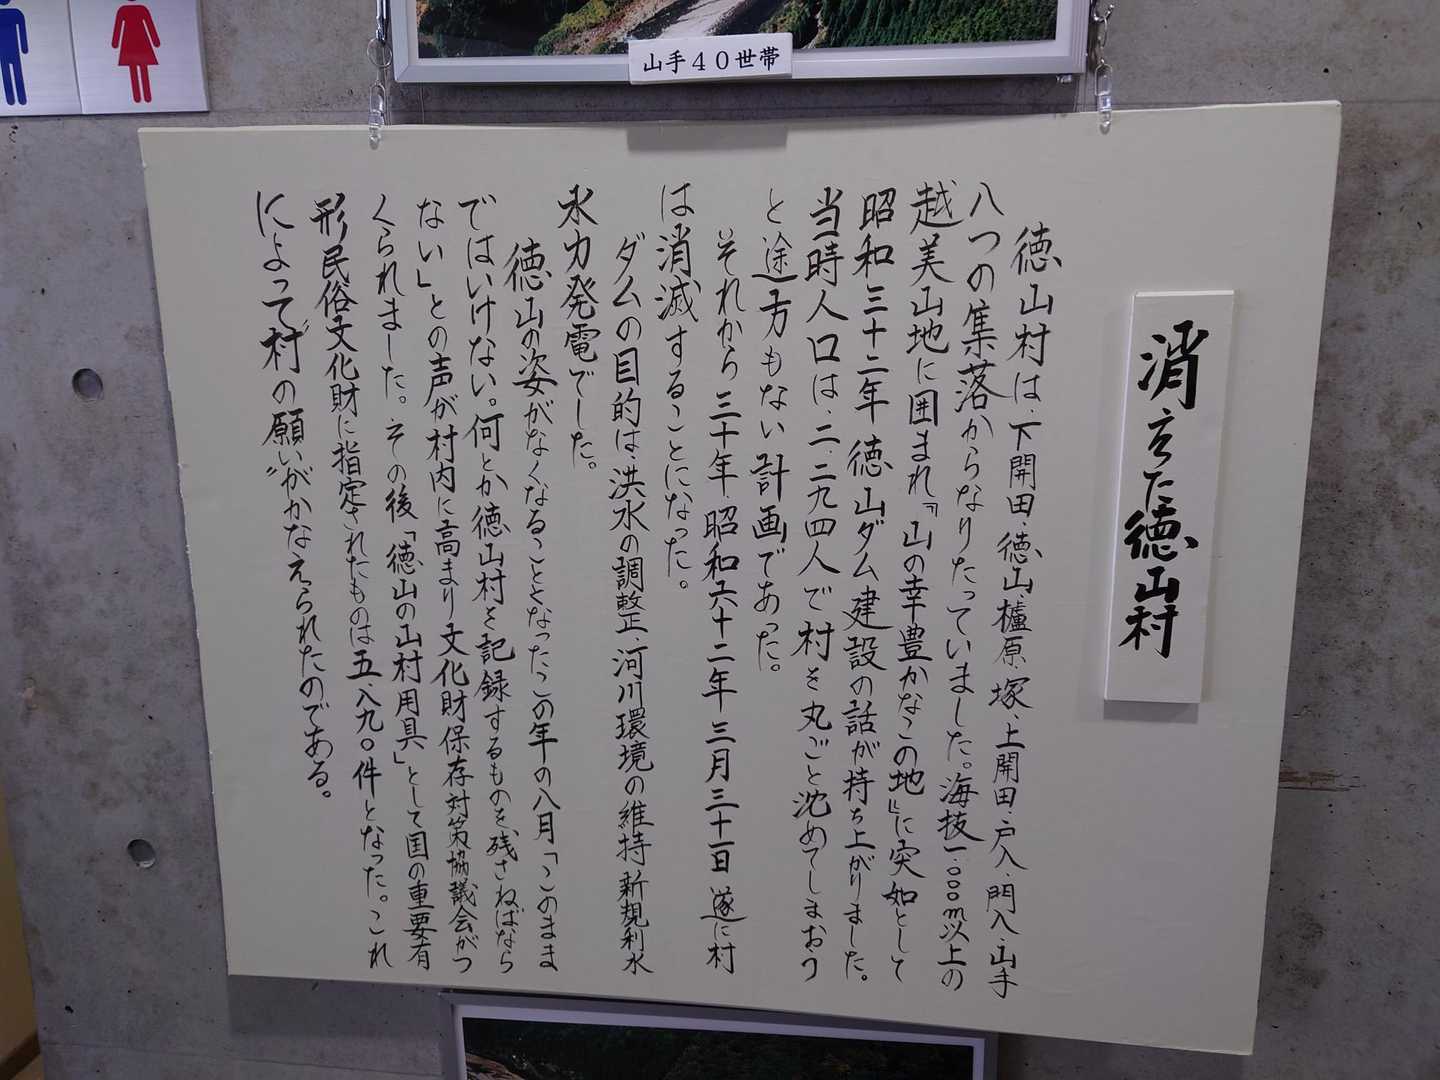 山手40世帯
消えた徳山村
徳山村は、下開田・徳山・櫨原・塚・上開田・戸入・門入・山手
八つの集落からなりたっていました。海抜一、〇〇〇m以上の
越美山地に囲まれ『山の幸豊かなこの地』に突如として
昭和三十二年徳山ダム建設の話が持ち上がりました。
当時人口は、二、二九四人で村を丸ごと沈めてしまおう
と途方もない計画であった。
それから三十年、昭和六十二年三月三十一日遂に村
は消滅することになった。
ダムの目的は、洪水の調整、河川環境の維持、新規利水
水力発電でした。
徳山の姿がなくなることとなったこの年の八月「このまま
ではいけない。何とか徳山村を記録するものを残さねばなら
ない」との声が村内に高まり文化財保存対策協議会がつ
くられました。その後「徳山の山村用具」として国の重要有
形民俗文化財に指定されたものは五、八九〇件となった。これ
によって“村の願い”がかなえられたのである。